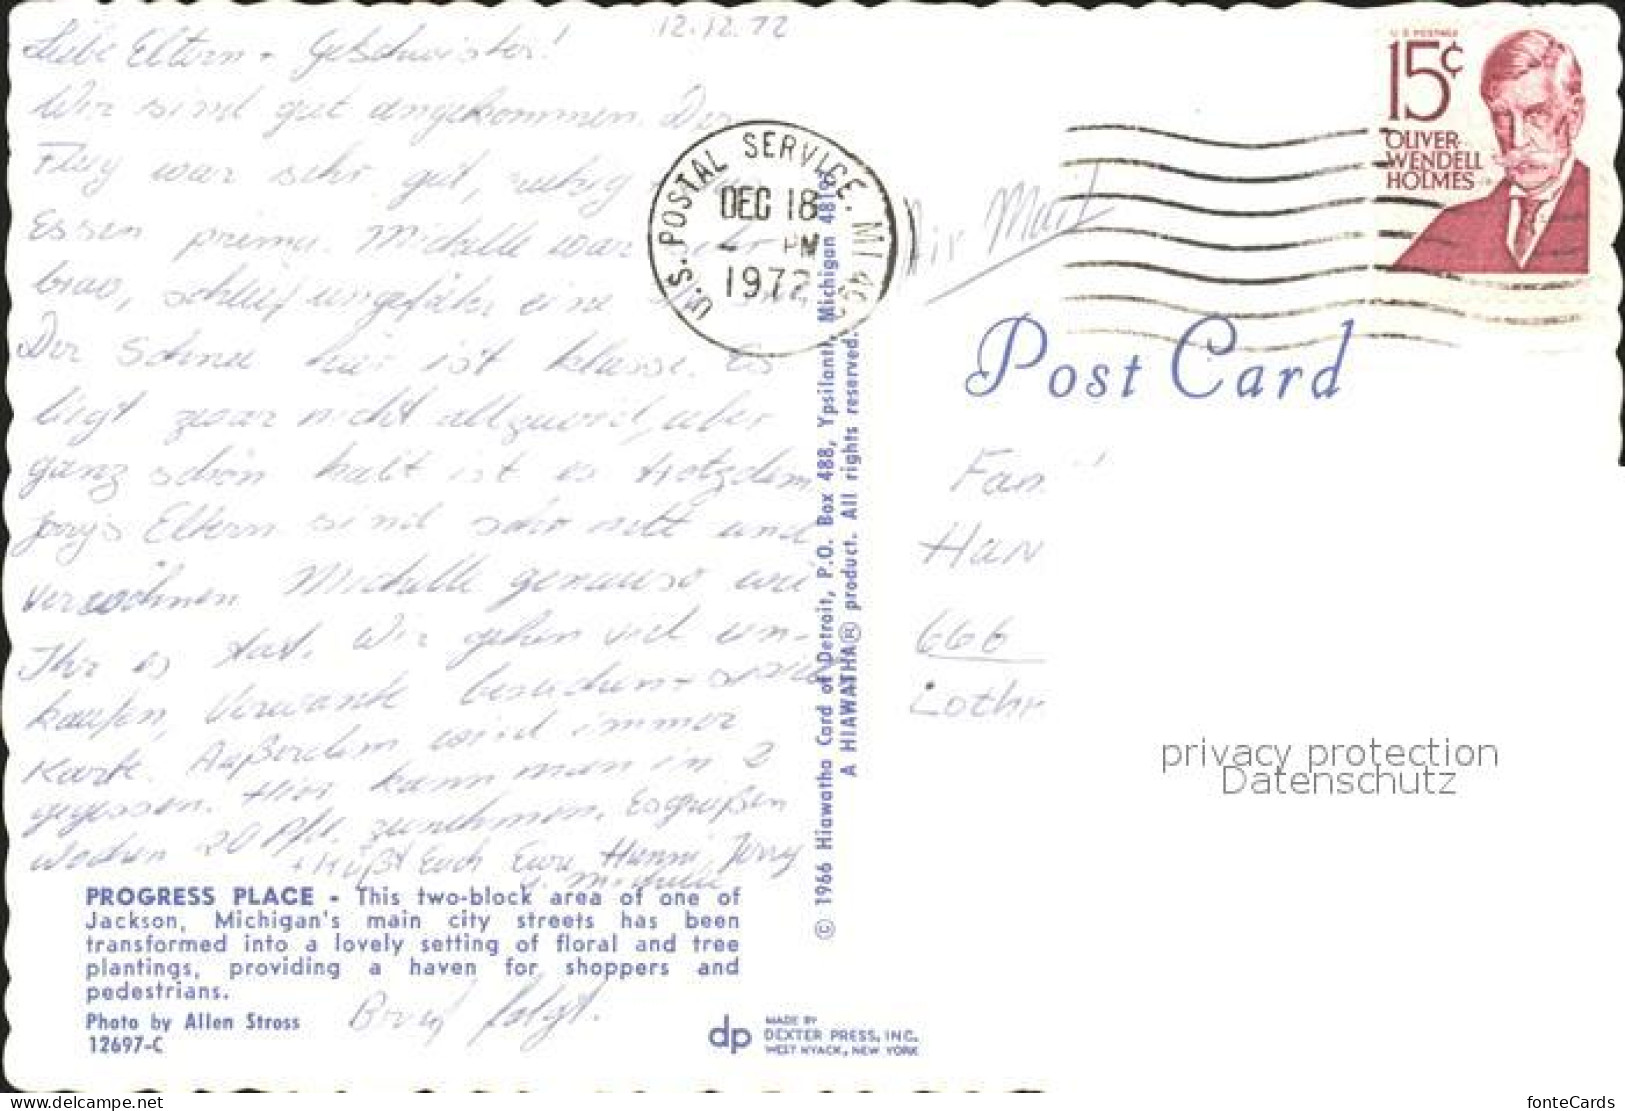 12.12.72
Liebe Eltern + Geschwister!
Wir sind gut angekommen. Der
Flug war sehr gut, ruhig
Essen prima. Michelle war sehr
brav, schlief ungefähr eine
Der Schnee hier ist klasse. Es
liegt zwar nicht allzuviel, aber
ganz schön kalt ist es trotzdem.
Jerrys Eltern sind sehr nett und
verwöhnen Michelle genauso wie
Ihr es tut. Wir gehen viel ein-
kaufen, Verwandte besuchen +
Karte. Außerdem wird immer
gegessen. Hier kann man in 2
Wochen 20 Pfd. zunehmen. Es grüßen
+ küßt Euch Eure Hanni, Jerry
u. Michelle
PROGRESS PLACE - This two-block area of one of
Jackson, Michigan's main city streets has been
transformed into a lovely setting of floral and tree
plantings, providing a haven for shoppers and
pedestrians.
Brief folgt.
Photo by Allen Stross
12697-C
© 1966 Hiawatha Card of Detroit, P.O. Box 488, Ypsilanti, Michigan 48197
A HIAWATHA® product. All rights reserved.
dp
MADE BY
DEXTER PRESS, INC.
WEST NYACK, NEW YORK
U.S. POSTAL SERVICE. MI
DEC 18
PM
1972
Air Mail
U S POSTAGE
15¢
OLIVER
WENDELL
HOLMES
Post Card
Fam
Han
666
Lothr
privacy protection
Datenschutz
www.delcampe.net
fonteCards